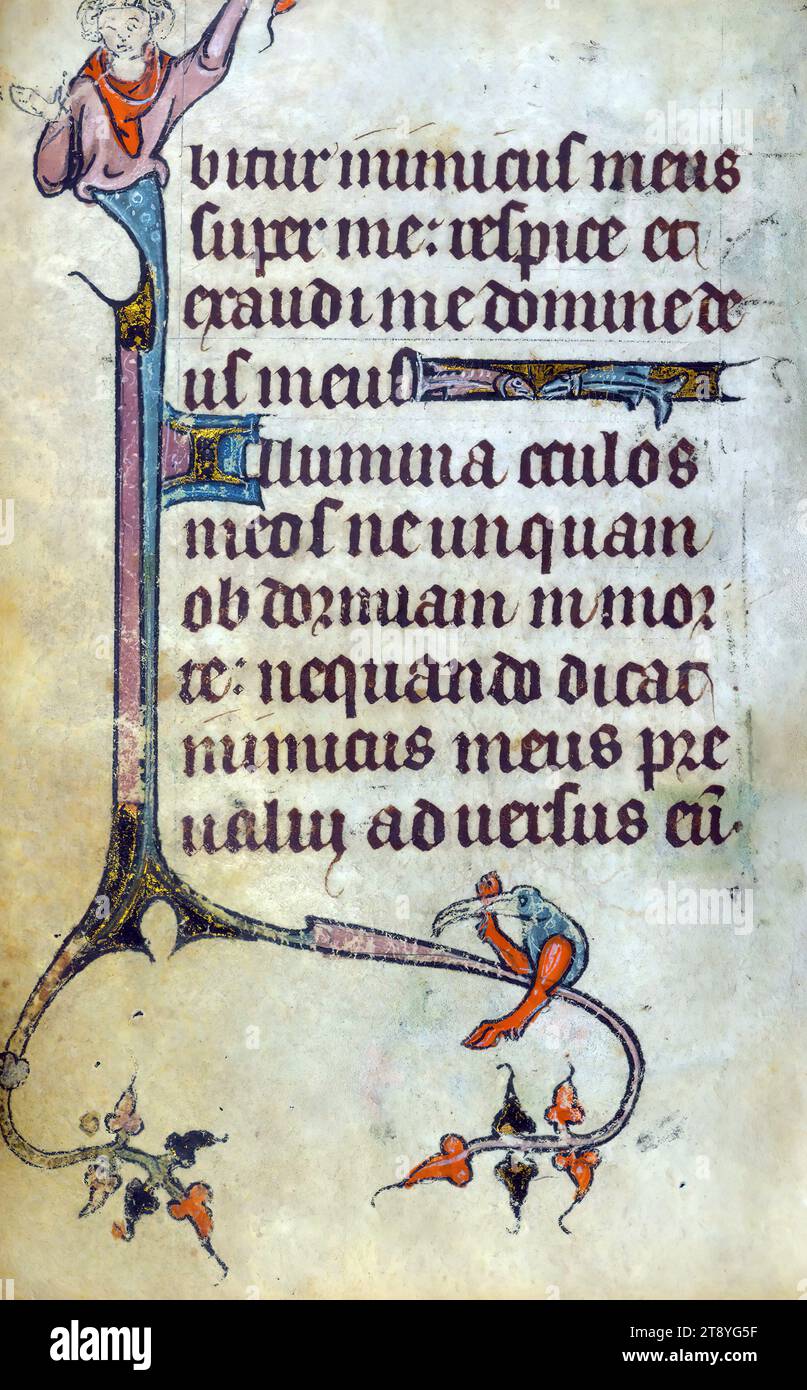 bitur inimicus meus
super me: respice et
exaudi me domine de
us meus
Illumina oculos
meos ne unquam
ob dormiam in mor
te: nequando dicat
inimicus meus pre
ualui aduersus eū.
alamy
Image ID: 2T8YG5F
www.alamy.com